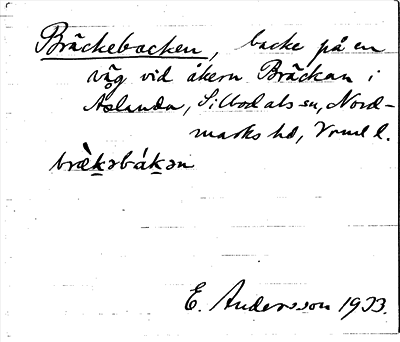 Bräckebacken, backe på en
väg vid åkern Bräckan i
Ålanda, Sillbodals sn, Nord-
marks hd, Vrml l.
bræ̀kəbákən
E. Andersson 1933.